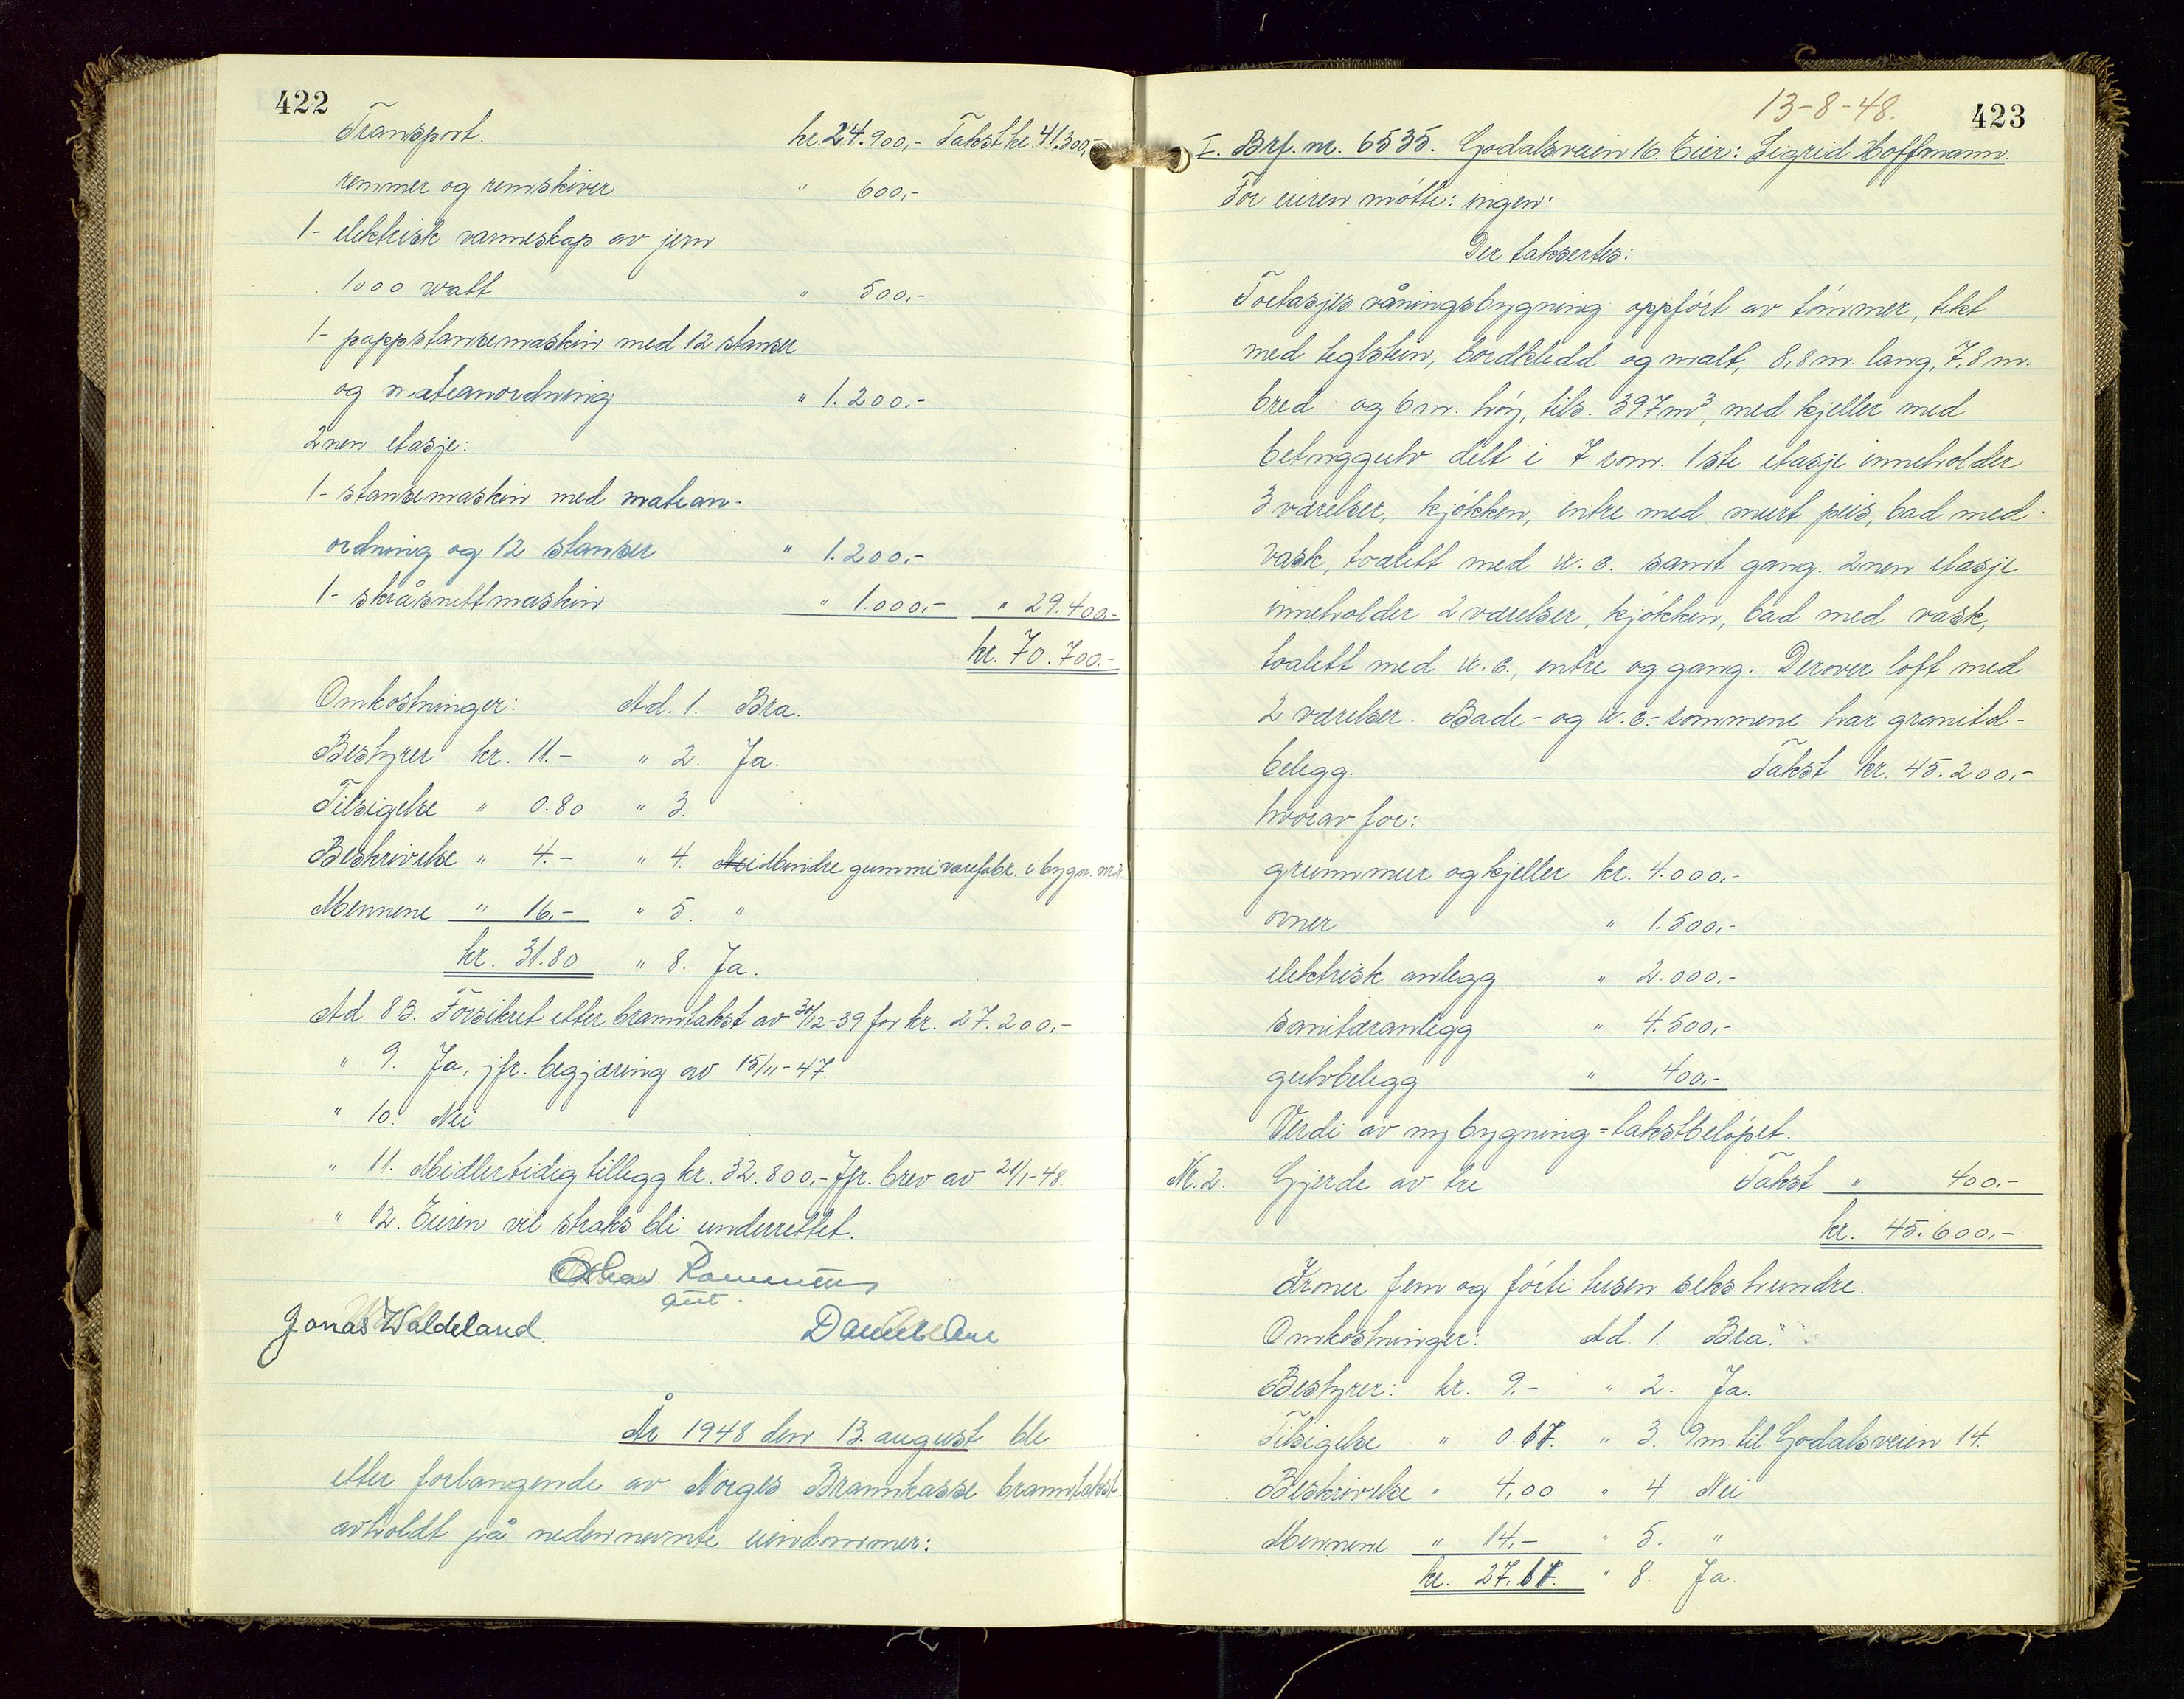 422
Transport. kr. 24.900,- Takst kr. 41.300,-
remmer og remskiver " 600,-
1- elektrisk varmeskap av jern
1000 watt " 500,-
1- pappstansemaskin med 12 stanser
og mateanordning " 1.200.-
2nen etasje:
1- stansemaskin med matean-
ordning og 12 stanser " 1.200,-
1- skråsnittmaskin " 1.000,- " 29.400,-
kr. 70.700.-
Omkostninger: Ad. 1. Bra.
Bestyrer kr. 11.- " 2. Ja.
Tilsigelse " 0.80 " 3.
Beskrivelse " 4.- " 4. Nei Mindre gummivarefabr. i bygn. nr. 2.
Mennene " 16,- " 5. "
kr. 31.80 " 8. Ja.
Ad 8 B. Forsikret etter branntakst av 30/12-39 for kr. 27.200,-
" 9. Ja, jfr. begjæring av 15/11-47.
" 10. Nei
" 11. Meidlertidig tillegg kr. 32.800,- Jfr. brev av 21/1-48.
" 12. Eieren vil straks bli underrettet.
Jonas Waldeland
År 1948 den 13. august ble
etter forlangende av Norges Brannkasse branntakst
avholdt på nedennevnte eiendommer:
13-8-48.
423
I. Brf. nr. 6535. Godalsveien 16. Eier: Sigrid Hoffmann.
For eieren møtte: ingen.
Der taksertes:
Toetasjes våningsbygning oppført av tømmer, tekt
med teglstein, bordkledd og malt, 8,8 m. lang, 7,8 m.
bred og 6 m. høy, tils. 397 m³, med kjeller med
betonggulv delt i 7 rom. 1ste etasje inneholder
3 værelser, kjøkken, entre med murt peis, bad med
vask, toalett med w.c. samt gang. 2nen etasje
inneholder 2 værelser, kjøkken, bad med vask,
toalett med w.c., entre og gang. Derover loft med
2 værelser. Bade- og w.c.-rommene har granitol-
belegg. Takst kr. 45.200,-
hvorav for:
grunnmur og kjeller kr. 4.000,-
ovner " 1.500,-
elektrisk anlegg " 2.000,-
sanitæranlegg " 4.500,-
gulvbelegg " 400,-
Verdi av ny bygning = takstbeløpet.
Nr. 2. Gjerde av tre Takst " 400,-
kr. 45.600,-
Kroner fem og førti tusen seks hundre.
Omkostninger: Ad. 1. Bra.
Bestyrer: kr. 9.- " 2. Ja.
Tilsigelse " 0.67. " 3. 9 m. til Godalsveien 14.
Beskrivelse " 4,00 " 4. Nei
Mennene " 14,- " 5. "
kr. 27.67. " 8. Ja.